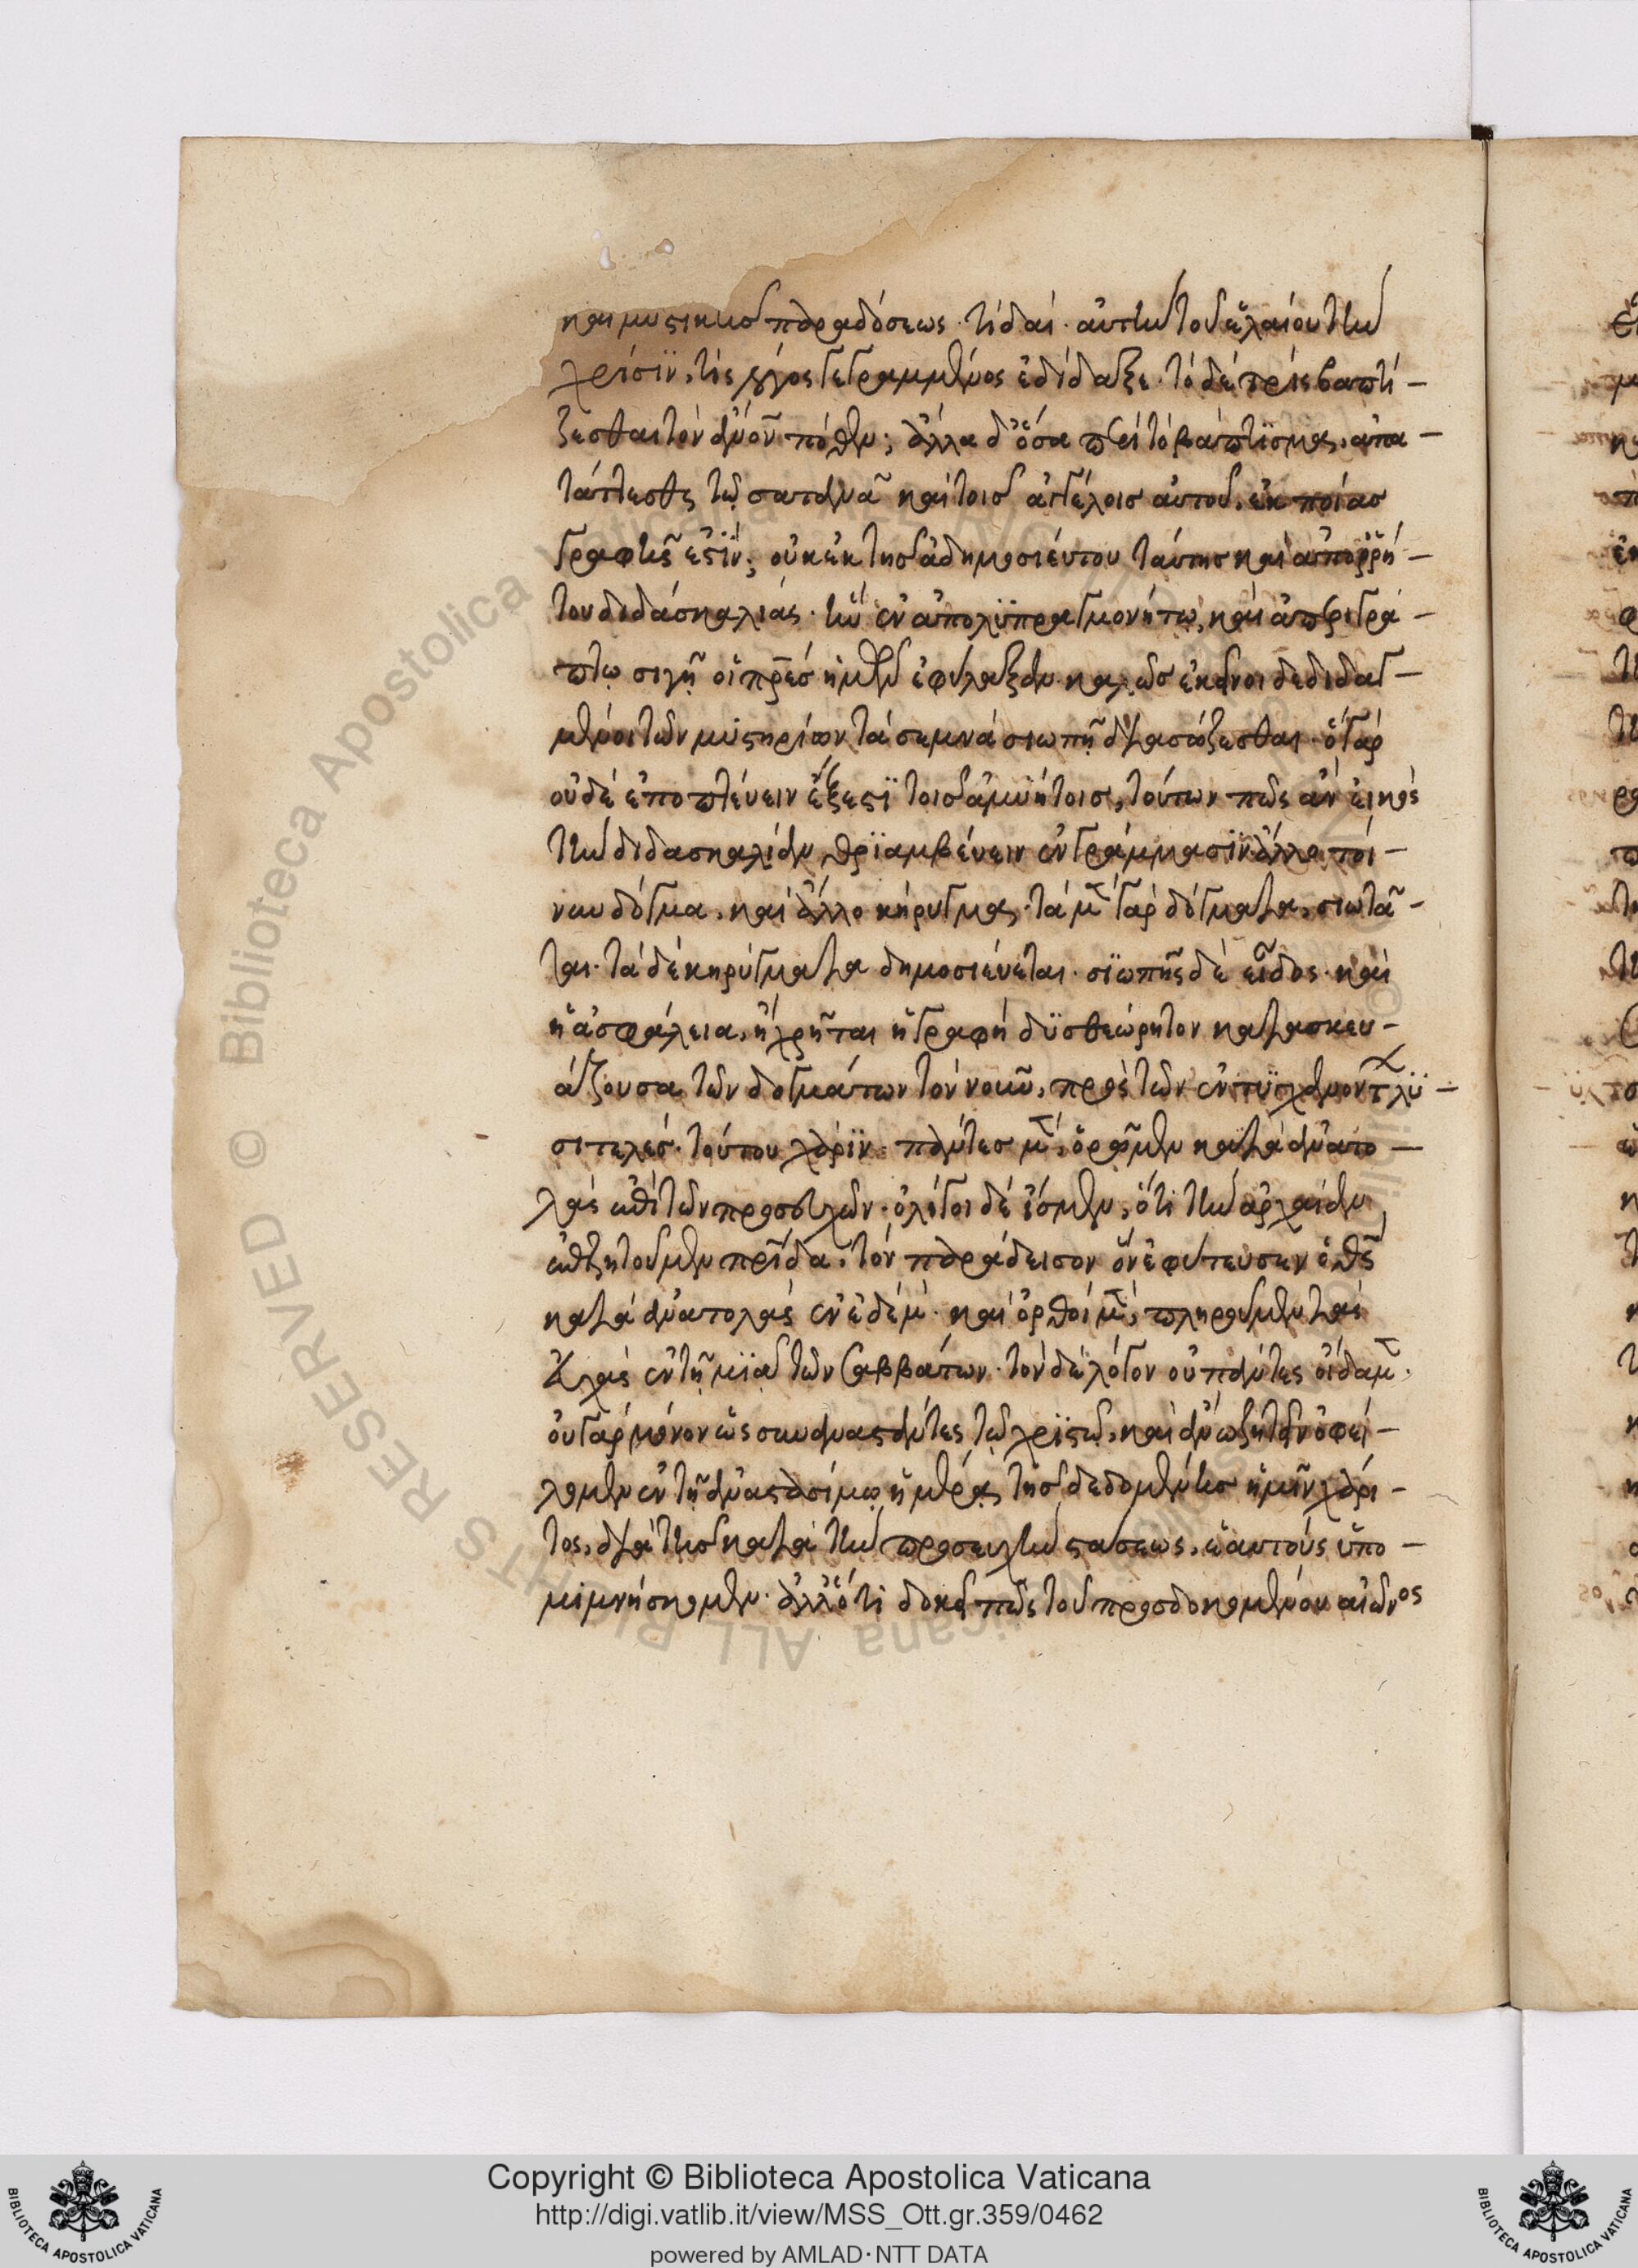 καὶ μυστικῆς παραδόσεως. τί δαί. αὐτὴν τοῦ ἐλαίου τὴν
χρίσϊν, τίς λόγος γεγραμμένος ἐδίδαξε. τὸ δὲ τρὶς βαπτί-
ζεσθαι τὸν ἀνον πόθεν; ἄλλα δ' ὅσα περὶ τὸ βάπτϊσμα. ἀπο-
τάττεσθε τῷ σατανᾶ καὶ τοῖς ἀγγέλοις αὐτοῦ, ἐκ ποίας
γραφῆς ἐστϊν; οὐκ ἐκ τῆς ἀδημοσιεύτου ταύτης καὶ ἀπορρή-
του διδασκαλίας. ἣν ἐν ἀπολϋπραγμονήτω, καὶ ἀπεριγρά-
πτω σιγῇ οἱ πρές ἡμῶν ἐφύλαξαν. καλῶς ἐκεῖνοι δεδιδαγ-
μένοι τῶν μϋστηρίων τὰ σεμνὰ σιωπῇ διασώζεσθαι. ἃ γὰρ
οὐδὲ ἐποπτεύειν ἔξεστϊ τοῖς ἀμϋήτοις, τούτων πῶς ἂν εἰκὸς
τὴν διδασκαλίαν θρϊαμβεύειν ἐν γράμμασϊν ἄλλο τοί-
νυν δόγμα, καὶ ἄλλο κήρυγμα. τὰ μ(ὲν) γὰρ δόγματα, σιωπᾶ-
ται. τὰ δὲ κηρύγματα δημοσιεύεται. σϊωπῆς δὲ εἶδος. καὶ
ἡ ἀσφάλεια, ᾗ χρῆται ἡ γραφὴ δϋσθεώρητον κατασκευ-
άζουσα τῶν δογμάτων τὸν νοῦν, πρὸς τῶν ἐντϋγχανοντ λϋ-
σιτελές. τούτου χάρϊν. πάντες μ(ὲν), ὁρῶμεν κατὰ ἀνατο-
λὰς ἐπὶ τῶν προσευχῶν. ὀλίγοι δὲ ἴσμεν, ὅτι τὴν ἀρχαίαν
ἐπιζητοῦμεν πρίδα, τὸν παράδεισον ὃν ἐφύτευσεν ὁ θς
κατὰ ἀνατολὰς ἐν ἐδέμ. καὶ ὀρθοὶ μ(ὲν), πληροῦμεν τὰς
εὐχὰς ἐν τῇ μϊᾷ τῶν σαββάτων. τὸν δὲ λόγον οὐ πάντες οἴδαμ(εν).
οὐ γὰρ μόνον ὡς συναναστάντες τῷ χρϊστῷ, καὶ ἄνω ζητεῖν ὀφεί-
λομεν ἐν τῇ ἀναστασίμω ἡμέρᾳ τῆς δεδομένης ἡμῖν χάρι-
τος, διὰ τῆς κατὰ τὴν προσευχὴν στάσεως, ἑαυτοὺς ὑπο-
μιμνήσκομεν. ἀλλ' ὅτι δοκεῖ πῶς τοῦ προσδοκομένου αἰῶνος
Copyright © Biblioteca Apostolica Vaticana
http://digi.vatlib.it/view/MSS_Ott.gr.359/0462
powered by AMLAD·NTT DATA